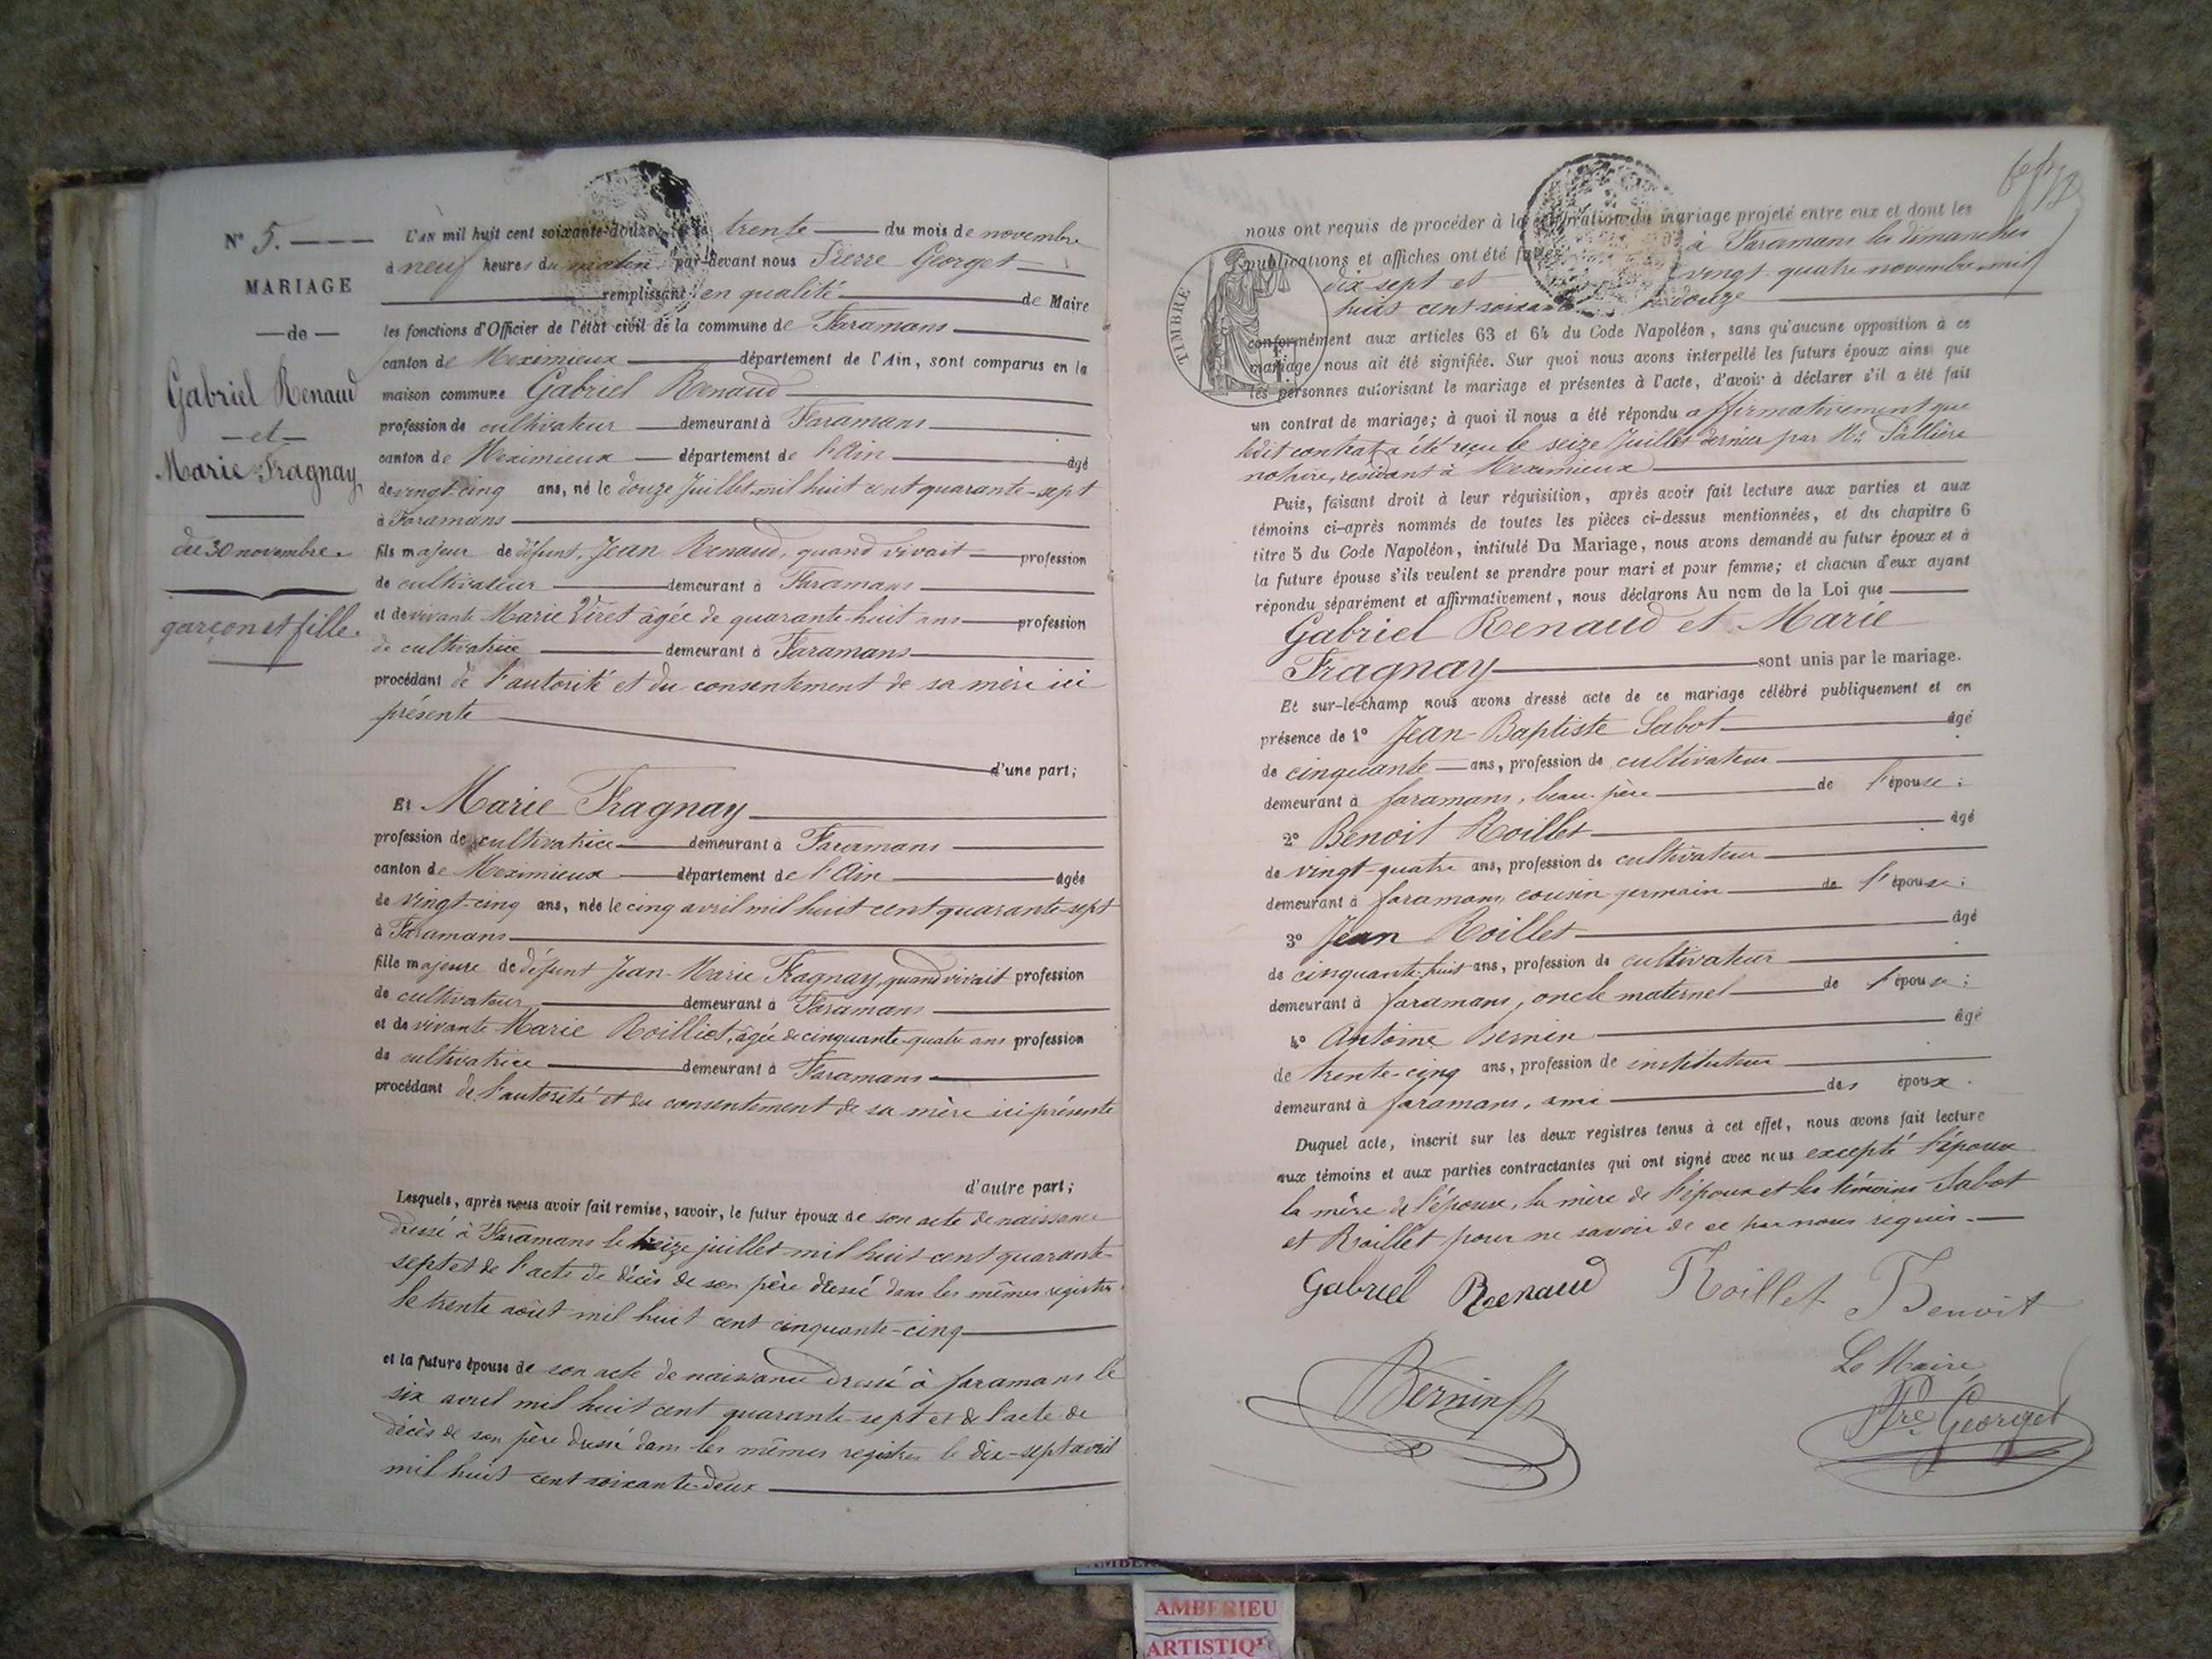 N° 5.
MARIAGE
de
Gabriel Renaud
et
Marie Fragnay
du 30 novembre.
garçon et fille.
L'AN mil huit cent soixante-douze, le trente du mois de novembre
à neuf heures du matin par-devant nous Pierre Georget
remplissant en qualité de Maire
les fonctions d'Officier de l'état civil de la commune de Faramans
canton de Meximieux département de l'Ain, sont comparus en la
maison commune Gabriel Renaud
profession de cultivateur demeurant à Faramans
canton de Meximieux département de l'Ain âgé
de vingt-cinq ans, né le douze Juillet mil huit cent quarante-sept
à Faramans
fils majeur de défunt, Jean Renaud, quand vivait profession
de cultivateur demeurant à Faramans
et de vivante Marie Viret âgée de quarante-huit ans profession
de cultivatrice demeurant à Faramans
procédant de l'autorité et du consentement de sa mère ici
présente
d'une part;
Et Marie Fragnay
profession de cultivatrice demeurant à Faramans
canton de Meximieux département de l'Ain âgée
de vingt-cinq ans, née le cinq avril mil huit cent quarante-sept
à Faramans
fille majeure de défunt Jean-Marie Fragnay, quand vivait profession
de cultivateur demeurant à Faramans
et de vivante Marie Roilliet, âgée de cinquante-quatre ans profession
de cultivatrice demeurant à Faramans
procédant de l'autorité et du consentement de sa mère ici présente
d'autre part;
Lesquels, après nous avoir fait remise, savoir, le futur époux de son acte de naissance
dressé à Faramans le treize juillet mil huit cent quarante-
sept et de l'acte de décès de son père dressé dans les mêmes registres
le trente août mil huit cent cinquante-cinq
et la future épouse de son acte de naissance dressé à faramans le
six avril mil huit cent quarante-sept et de l'acte de
décès de son père dressé dans les mêmes registres le dix-sept avril
mil huit cent soixante-deux
nous ont requis de procéder à la célébration du mariage projeté entre eux et dont les
publications et affiches ont été faites à Faramans les dimanches
dix sept et vingt-quatre novembre mil
huit cent soixante douze
TIMBRE
conformément aux articles 63 et 64 du Code Napoléon, sans qu'aucune opposition à ce
mariage nous ait été signifiée. Sur quoi nous avons interpellé les futurs époux ainsi que
les personnes autorisant le mariage et présentes à l'acte, d'avoir à déclarer s'il a été fait
un contrat de mariage; à quoi il nous a été répondu affirmativement que
ledit contrat a été reçu le seize Juillet dernier par Me
notaire, résidant à Meximieux
Puis, faisant droit à leur réquisition, après avoir fait lecture aux parties et aux
témoins ci-après nommés de toutes les pièces ci-dessus mentionnées, et du chapitre 6
titre 5 du Code Napoléon, intitulé Du Mariage, nous avons demandé au futur époux et à
la future épouse s'ils veulent se prendre pour mari et pour femme; et chacun d'eux ayant
répondu séparément et affirmativement, nous déclarons Au nom de la Loi que
Gabriel Renaud et Marie
Fragnay sont unis par le mariage.
Et sur-le-champ nous avons dressé acte de ce mariage célébré publiquement et en
présence de 1° Jean-Baptiste Sabot âgé
de cinquante ans, profession de cultivateur
demeurant à faramans, beau-père de l'épouse;
2° Benoit Roillet âgé
de vingt-quatre ans, profession de cultivateur
demeurant à faramans, cousin germain de l'épouse;
3° Jean Roillet âgé
de cinquante-huit ans, profession de cultivateur
demeurant à faramans, oncle maternel de l'épouse;
4° Antoine Bernin âgé
de trente-cinq ans, profession de instituteur
demeurant à faramans, ami des époux.
Duquel acte, inscrit sur les deux registres tenus à cet effet, nous avons fait lecture
aux témoins et aux parties contractantes qui ont signé avec nous excepté l'épouse
la mère de l'épouse, la mère de l'époux et les témoins Sabot
et Roillet pour ne savoir de ce par nous requis.
Gabriel Renaud Roillet Benoit
Bernin
Le Maire
Pre Georget
AMBERIEU
ARTISTIQU